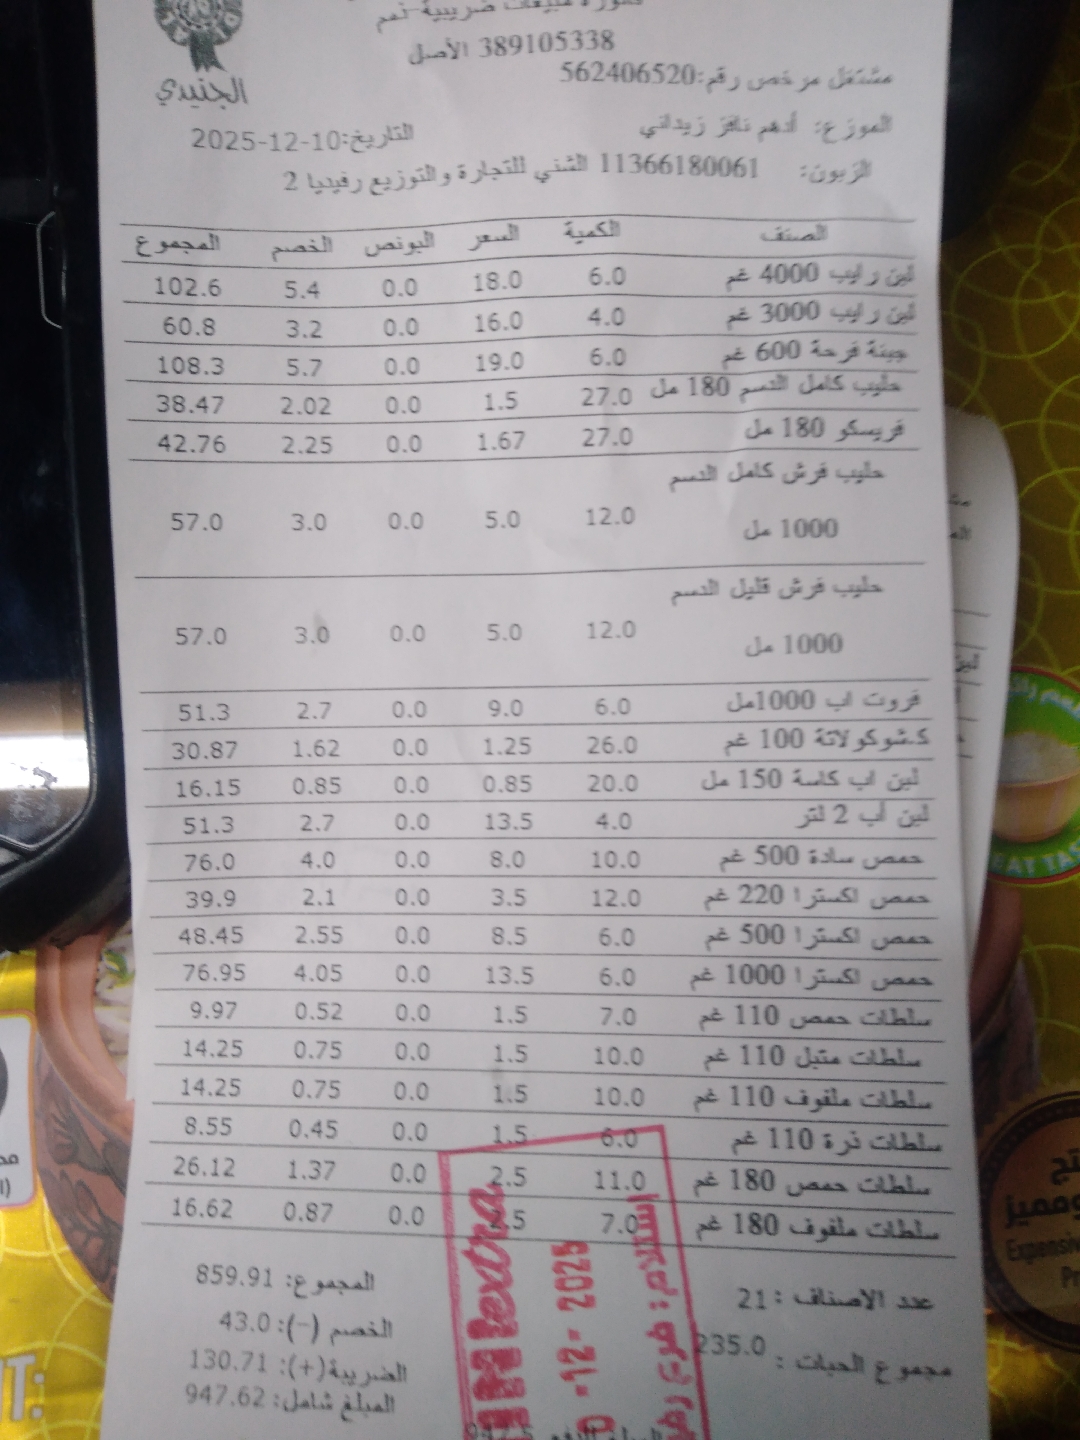 فاتورة مبيعات ضريبية-نعم
389105338 الأصل
الجنيدي
مشتغل مرخص رقم:562406520
الموزع: أدهم نافز زيداني
التاريخ:2025-12-10
الزبون: 11366180061 الشني للتجارة والتوزيع رفيديا 2
الصنف الكمية السعر البونص الخصم المجموع
لبن رايب 4000 غم 6.0 18.0 0.0 5.4 102.6
لبن رايب 3000 غم 4.0 16.0 0.0 3.2 60.8
جبنة فرحة 600 غم 6.0 19.0 0.0 5.7 108.3
حليب كامل الدسم 180 مل 27.0 1.5 0.0 2.02 38.47
فريسكو 180 مل 27.0 1.67 0.0 2.25 42.76
حليب فرش كامل الدسم
1000 مل 12.0 5.0 0.0 3.0 57.0
حليب فرش قليل الدسم
1000 مل 12.0 5.0 0.0 3.0 57.0
فروت اب 1000مل 6.0 9.0 0.0 2.7 51.3
ك.شوكولاتة 100 غم 26.0 1.25 0.0 1.62 30.87
لبن اب كاسة 150 مل 20.0 0.85 0.0 0.85 16.15
لبن أب 2 لتر 4.0 13.5 0.0 2.7 51.3
حمص سادة 500 غم 10.0 8.0 0.0 4.0 76.0
حمص اكسترا 220 غم 12.0 3.5 0.0 2.1 39.9
حمص اكسترا 500 غم 6.0 8.5 0.0 2.55 48.45
حمص اكسترا 1000 غم 6.0 13.5 0.0 4.05 76.95
سلطات حمص 110 غم 7.0 1.5 0.0 0.52 9.97
سلطات متبل 110 غم 10.0 1.5 0.0 0.75 14.25
سلطات ملفوف 110 غم 10.0 1.5 0.0 0.75 14.25
سلطات ذرة 110 غم 6.0 1.5 0.0 0.45 8.55
سلطات حمص 180 غم 11.0 2.5 0.0 1.37 26.12
سلطات ملفوف 180 غم 7.0 2.5 0.0 0.87 16.62
عدد الاصناف : 21
مجموع الحبات : 235.0
المجموع: 859.91
الخصم (-): 43.0
الضريبة(+): 130.71
المبلغ شامل: 947.62
extra
-12- 2025
استلام: فرع
EAT TAS
Expensiv